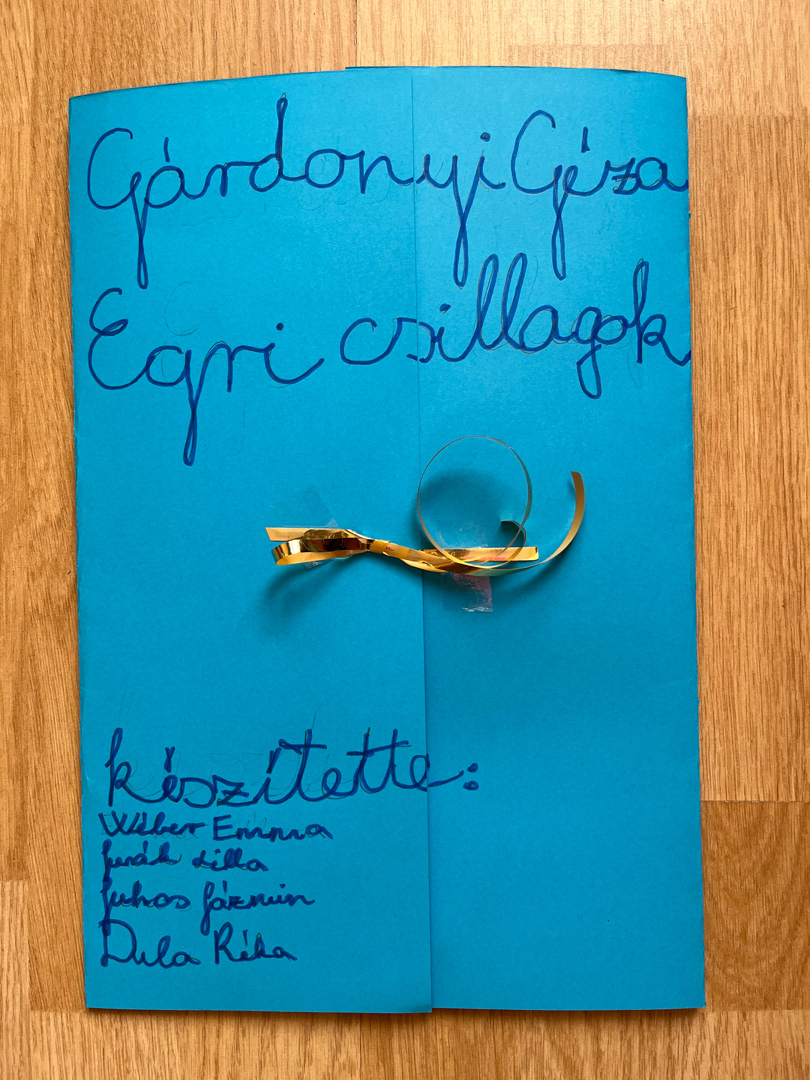 Gárdonyi Géza
Egri csillagok
készítette:
Wéber Emma
Jurák Lilla
Juhos Jázmin
Dula Réka